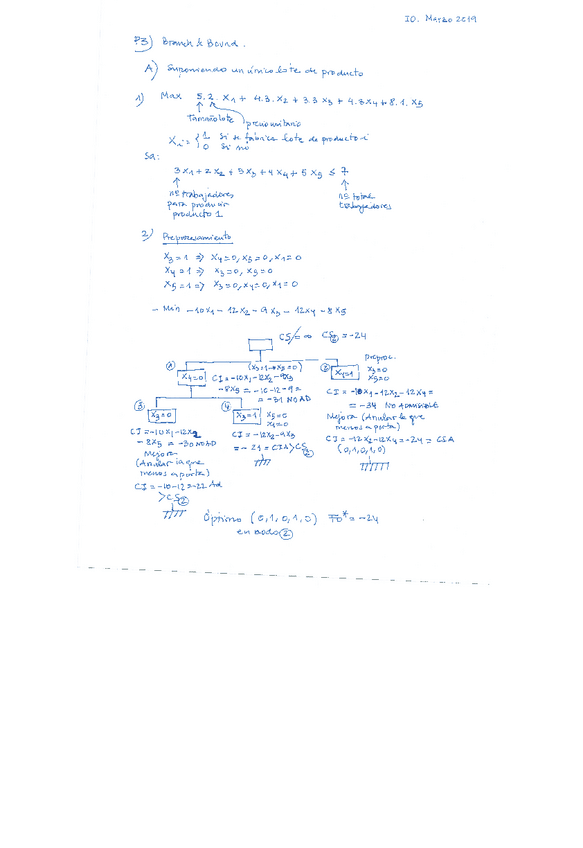 IO. Marzo 2019
P3) Branch & Bound.
A) Suponiendo un único lote de producto
1) Max 5.2. X1 + 4.3. X2 + 3.3 X3 + 4.3 X4 + 8.1. X5
Tamaño lote precio unitario
Xi = { 1 si se fabrica lote de producto i
0 si no
Sa:
3X1 + 2X2 + 5X3 + 4X4 + 5X5 ≤ 7
nº trabajadores
para producir
producto 1
nº total
trabajadores
2) Preprocesamiento
X3 = 1 ⇒ X4 = 0, X5 = 0, X1 = 0
X4 = 1 ⇒ X3 = 0, X5 = 0
X5 = 1 ⇒ X3 = 0, X4 = 0, X1 = 0
- Min -10X1 - 12X2 - 9X3 - 12X4 - 8X5
CS = ∞ CS② = -24
① X4 = 0
CI = -10X1 - 12X2 - 9X3
- 8X5 = -10 - 12 - 9 =
= -31 NO AD
② X4 = 1
preproc.
X3 = 0
X5 = 0
CI = -10X1 - 12X2 - 12X4 =
= -34 NO ADMISIBLE
Mejora (Anular la que
menos aporta)
CI = -12X2 - 12X4 = -24 = CSA
(0,1,0,1,0)
③ X3 = 0
CI = -10X1 - 12X2
- 8X5 = -30 NO AD
Mejora
(Anular la que
menos aporta)
CI = -10 - 12 = -22 Ad
> CS②
④ X3 = 1
X5 = 0
X1 = 0
CI = -12X2 - 9X3
= -21 = CIA > CS②
Óptimo (0,1,0,1,0) Fo* = -24
en nodo ②